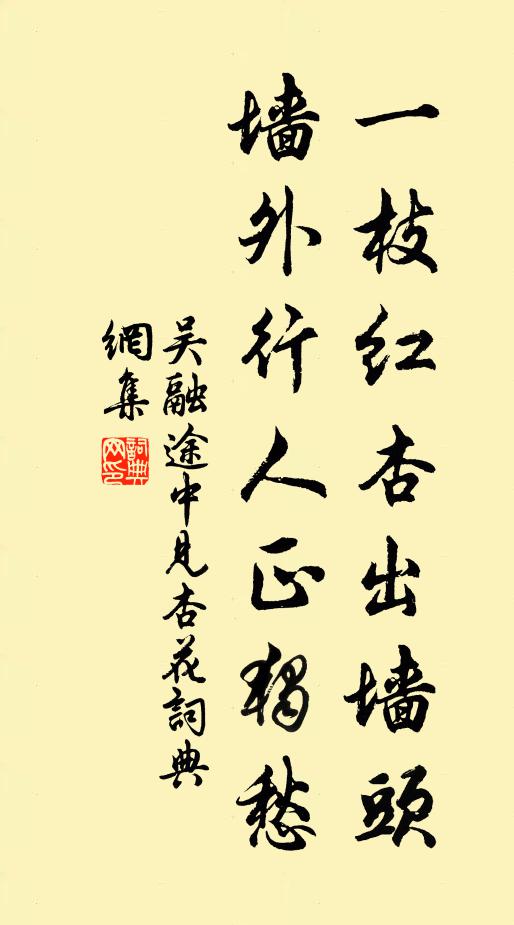 一枝红杏出墙頭
墙外行人正獨愁
吴融途中見杏花詞典
網集
詞典
网印